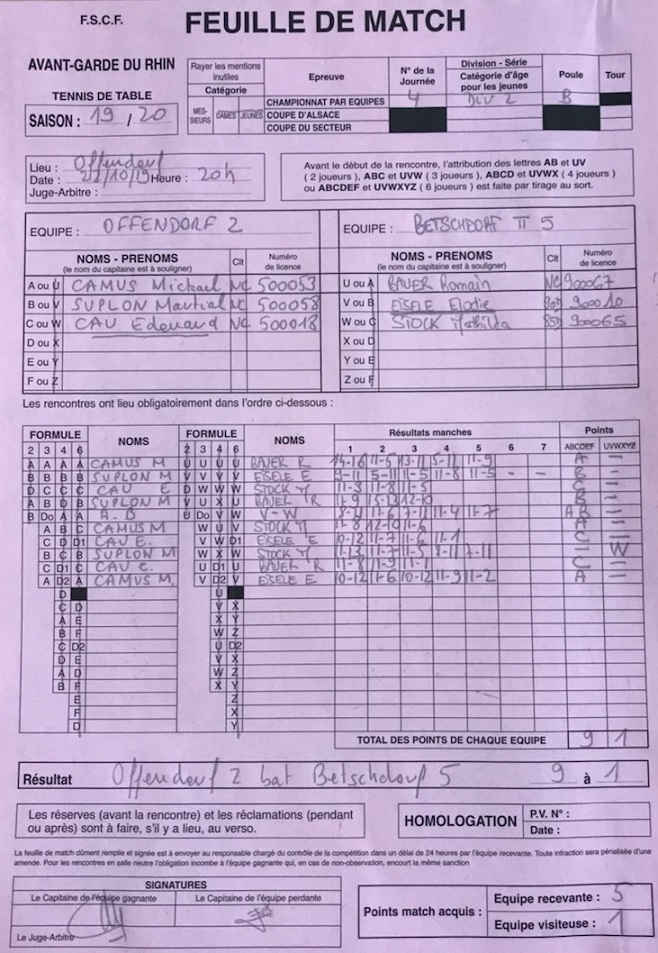 F.S.C.F.
FEUILLE DE MATCH
AVANT-GARDE DU RHIN
TENNIS DE TABLE
SAISON : 19 / 20
Rayer les mentions inutiles
Catégorie
MES-SIEURS DAMES JEUNES
Epreuve
N° de la Journée
Division - Série
Catégorie d'âge pour les jeunes
Poule
Tour
CHAMPIONNAT PAR EQUIPES 4 DIV 2 B
COUPE D'ALSACE
COUPE DU SECTEUR
Lieu : Offendorf
Date : /10/19 Heure : 20h
Juge-Arbitre :
Avant le début de la rencontre, l'attribution des lettres AB et UV
( 2 joueurs ), ABC et UVW ( 3 joueurs ), ABCD et UVWX ( 4 joueurs )
ou ABCDEF et UVWXYZ ( 6 joueurs ) est faite par tirage au sort.
EQUIPE : OFFENDORF 2
EQUIPE : BETSCHDORF 5
NOMS - PRENOMS Clt Numéro de licence
(le nom du capitaine est à souligner)
NOMS - PRENOMS Clt Numéro de licence
(le nom du capitaine est à souligner)
A ou U CAMUS Mickael NC 500053 U ou A BAUER Romain NC 900067
B ou V SUPLON Martial NC 500058 V ou B EISELE Elodie 90010
C ou W CAU Edouard NC 500018 W ou C STOCK Mathilda 900065
D ou X X ou D
E ou Y Y ou E
F ou Z Z ou F
Les rencontres ont lieu obligatoirement dans l'ordre ci-dessous :
FORMULE NOMS FORMULE NOMS Résultats manches Points
2 3 4 6 2 3 4 6 1 2 3 4 5 6 7 ABCDEF UVWXYZ
A A A A CAMUS M U U U U BAUER R 14-16 11-5 13-11 5-11 11-9 A —
B B B B SUPLON M V V V V EISELE E 9-11 5-11 11-5 11-8 11-5 - - B —
D C C C CAU E D W W W STOCK M 11-3 11-8 11-5 C —
A B D B SUPLON M V U X U BAUER R 11-9 15-13 12-10 B —
B Do A A A.B U Do V W V-W 8-11 11-6 7-11 11-4 11-7 AB —
A B C CAMUS M W U V STOCK M 11-8 12-10 11-6 A —
C D D1 CAU E. V W D1 EISELE E 10-12 11-7 11-6 11-1 C —
B C B SUPLON M W X W STOCK M 11-13 11-7 11-5 8-11 7-11 — W
C D1 C CAU E. U D1 U BAUER R 11-8 11-9 11-1 C —
A D2 A CAMUS M. V D2 V EISELE E 10-12 11-6 10-12 11-9 11-2 A —
D U
C D V X
A E X Y
B F W Z
C D2 U D2
D E V X
A D W Z
B F X Y
E Z
F X
D Y
TOTAL DES POINTS DE CHAQUE EQUIPE 9 1
Résultat Offendorf 2 bat Betschdorf 5 9 à 1
Les réserves (avant la rencontre) et les réclamations (pendant
ou après) sont à faire, s'il y a lieu, au verso.
HOMOLOGATION P.V. N° :
Date :
La feuille de match dûment remplie et signée est à envoyer au responsable chargé du contrôle de la compétition dans un délai de 24 heures par l'équipe recevante. Toute infraction sera pénalisée d'une
amende. Pour les rencontres en salle neutre l'obligation incombe à l'équipe gagnante qui, en cas de non-observation, encourt la même sanction
SIGNATURES
Le Capitaine de l'équipe gagnante Le Capitaine de l'équipe perdante
Le Juge-Arbitre
Points match acquis :
Equipe recevante : 5
Equipe visiteuse : 1